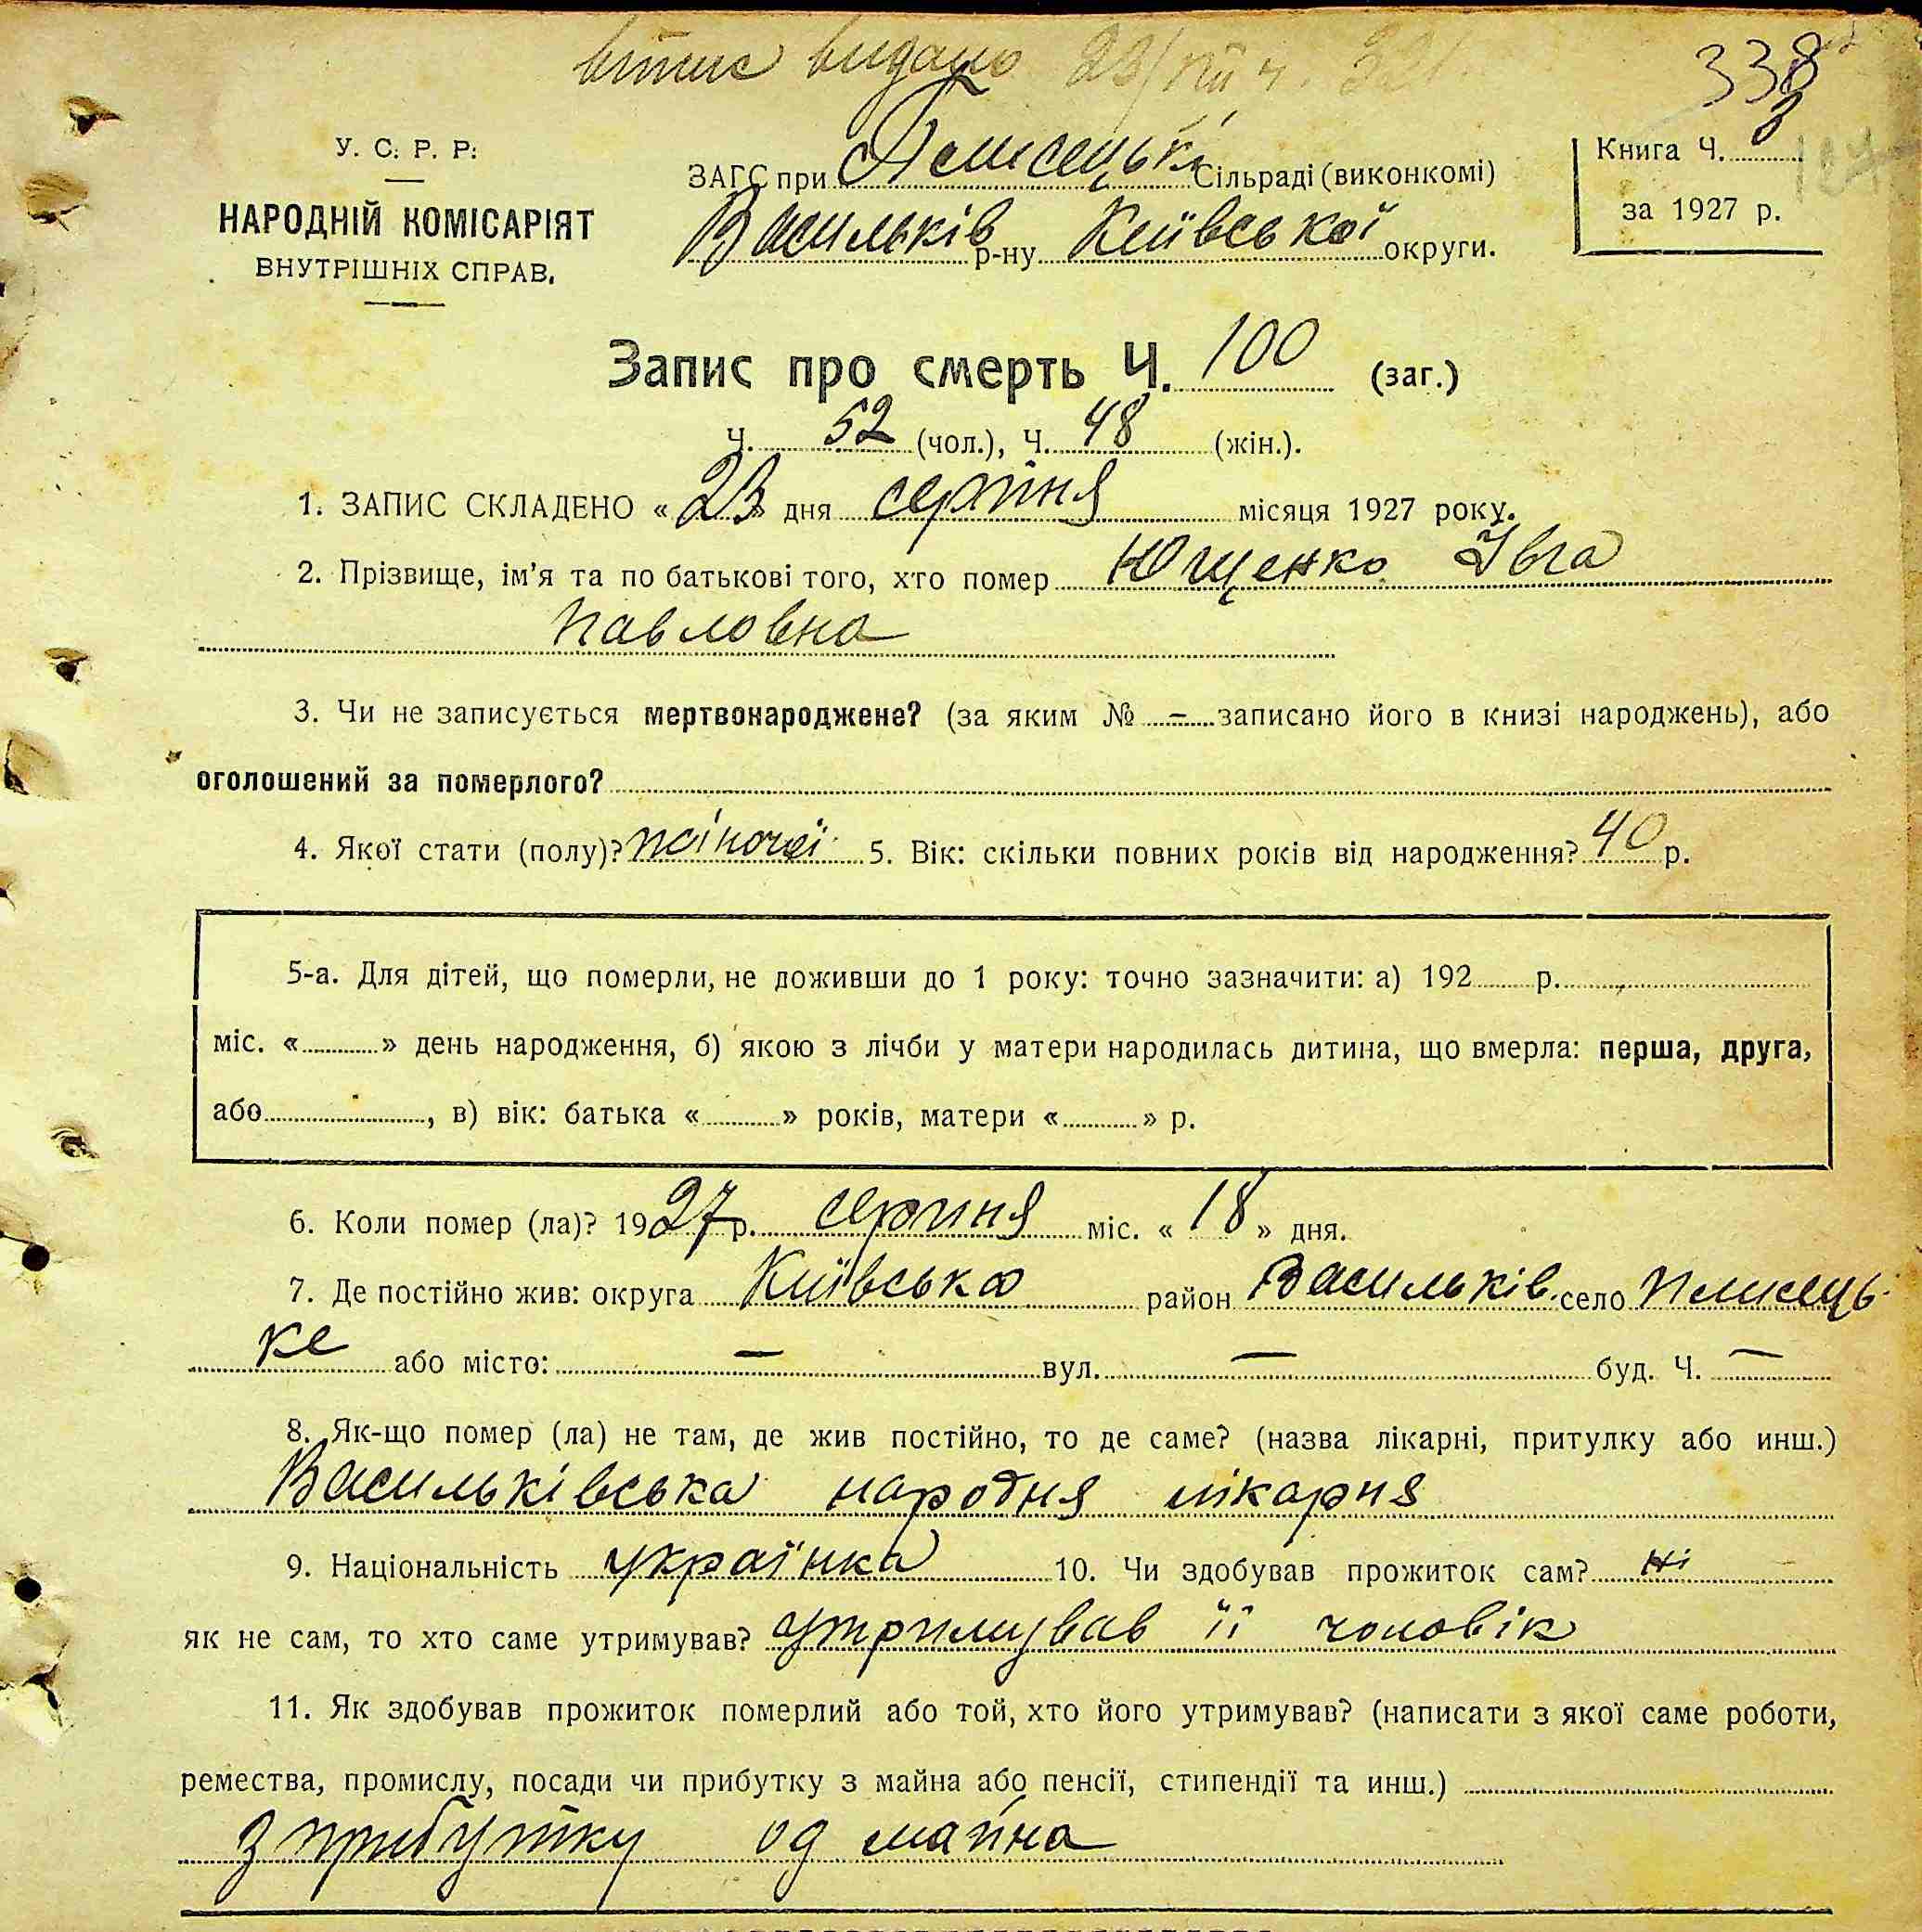 витис видано 23/VIII ч. 32
338
У. С. Р. Р.
НАРОДНІЙ КОМІСАРІЯТ
ВНУТРІШНІХ СПРАВ.
ЗАГС при Плисецькі Сільраді (виконкомі)
Васильків р-ну Київської округи.
Книга Ч. 3
за 1927 р.
Запис про смерть Ч. 100 (заг.)
Ч. 52 (чол.), Ч. 48 (жін.).
1. ЗАПИС СКЛАДЕНО «23» дня серпня місяця 1927 року.
2. Прізвище, ім’я та по батькові того, хто помер Ющенко Івга
Павловна
3. Чи не записується мертвонароджене? (за яким № – записано його в книзі народжень), або
оголошений за померлого?
4. Якої стати (полу)? жіночої 5. Вік: скільки повних років від народження? 40 р.
5-а. Для дітей, що померли, не доживши до 1 року: точно зазначити: а) 192 р.
міс. « » день народження, б) якою з лічби у матери народилась дитина, що вмерла: перша, друга,
або , в) вік: батька « » років, матери « » р.
6. Коли помер (ла)? 1927 р. серпня міс. «18» дня.
7. Де постійно жив: округа Київська район Васильків. село Плисець-
ке або місто: — вул. — буд. Ч. —
8. Як-що помер (ла) не там, де жив постійно, то де саме? (назва лікарні, притулку або инш.)
Васильківська народня лікарня
9. Національність українка 10. Чи здобував прожиток сам? ні
як не сам, то хто саме утримував? утримував її чоловік
11. Як здобував прожиток померлий або той, хто його утримував? (написати з якої саме роботи,
ремества, промислу, посади чи прибутку з майна або пенсії, стипендії та инш.)
з прибутку од майна